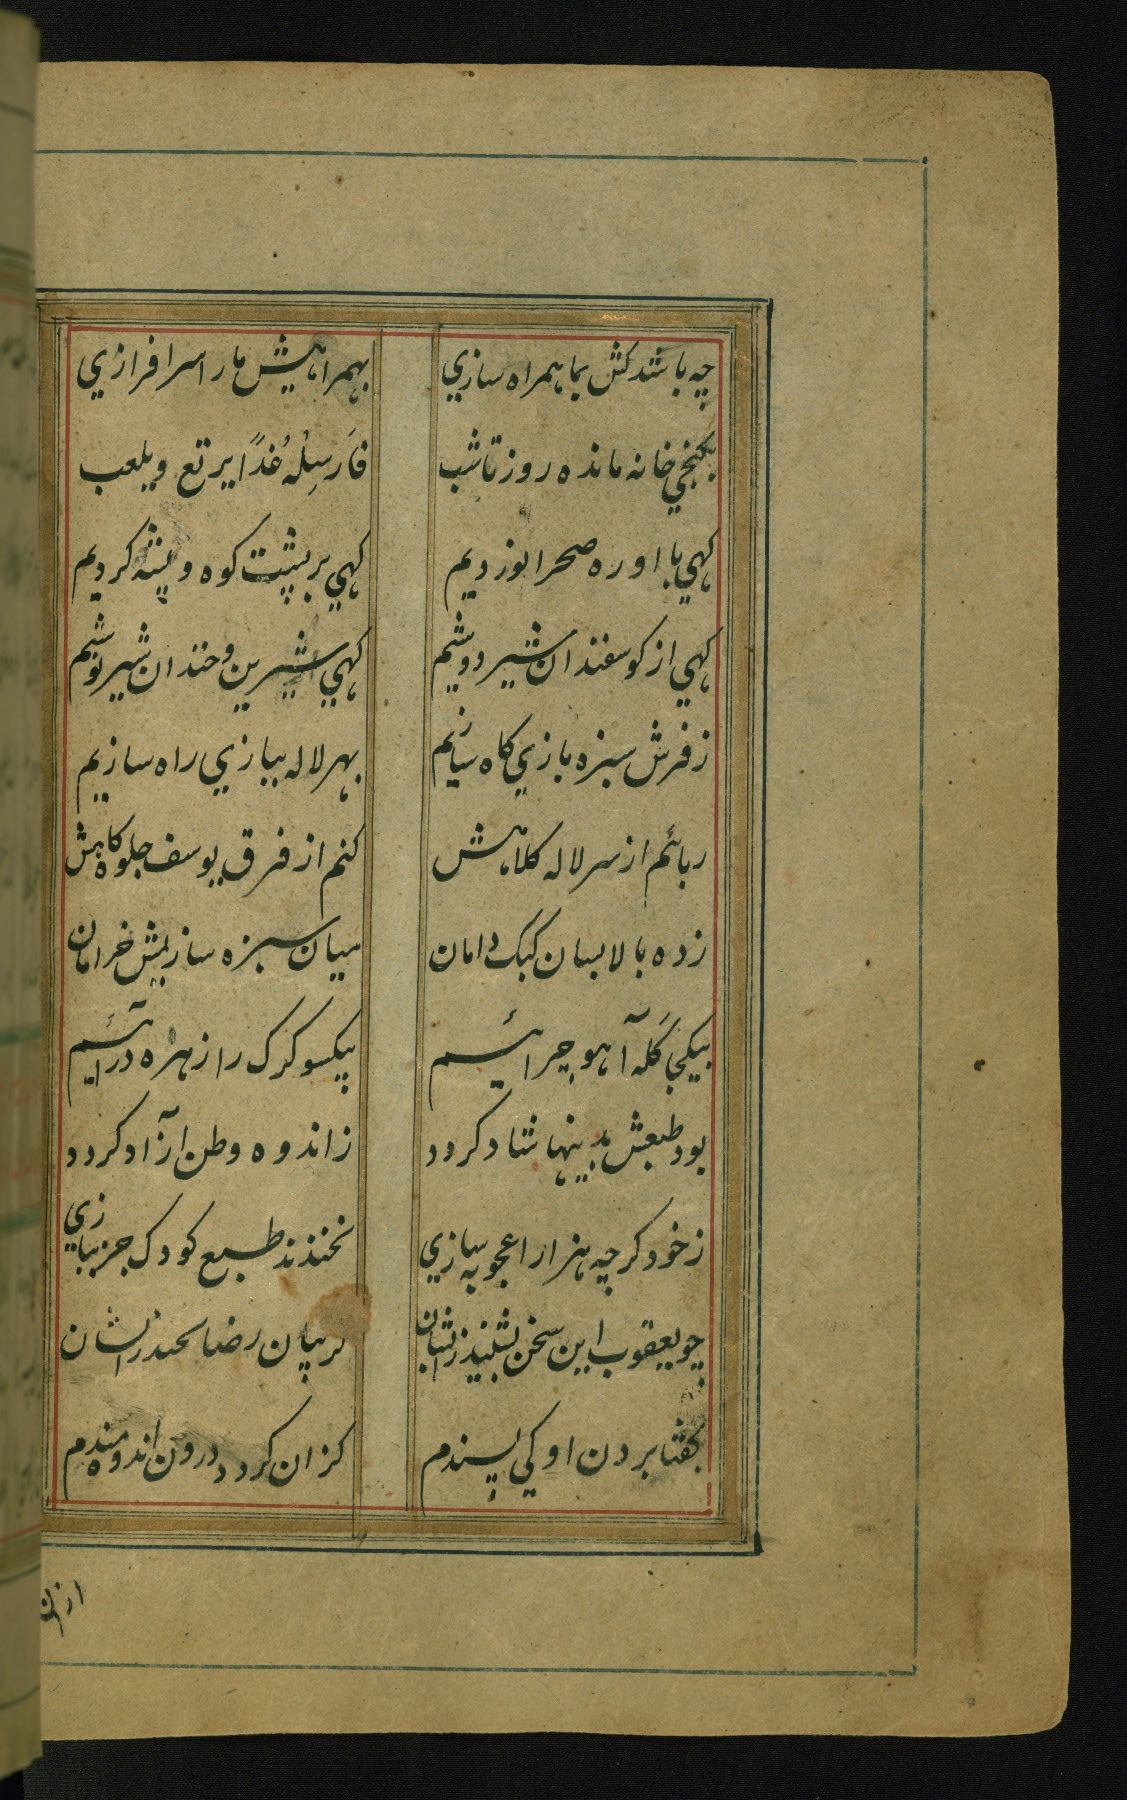 چه باشد کش بما همراه سازی
بهمراهیش ما را سرافرازی
بکنجی خانه مانده روز تا شب
فَارسِلْهُ غَدًا یرتع ویلعب
کهی با او ره صحرا نوردیم
کهی بر پشت کوه و پشته کردیم
کهی از کوسفندان شیر دوشیم
کهی شیرین و خندان شیر نوشیم
ز فرش سبزه بازی کاه سازیم
بهر لاله ببازی راه سازیم
ربائم از سر لاله کلاهش
کنم از فرق یوسف جلوه کاهش
زده بالا بسان کبک دامان
میان سبزه سازیمش خرامان
بیکجی گله آهو چرائیم
بیکسو کرک را زهره درائیم
بود طبعش بدینها شاد کردد
ز اندوه وطن آزاد کردد
ز خود کرچه هزار اعجوبه سازی
نخندند طبع کودک جز ببازی
چو یعقوب این سخن بشنید زیشان
کریبان رضا
بکفتا بردن او کی پسندم
کزان کردد درون اندوه مندم